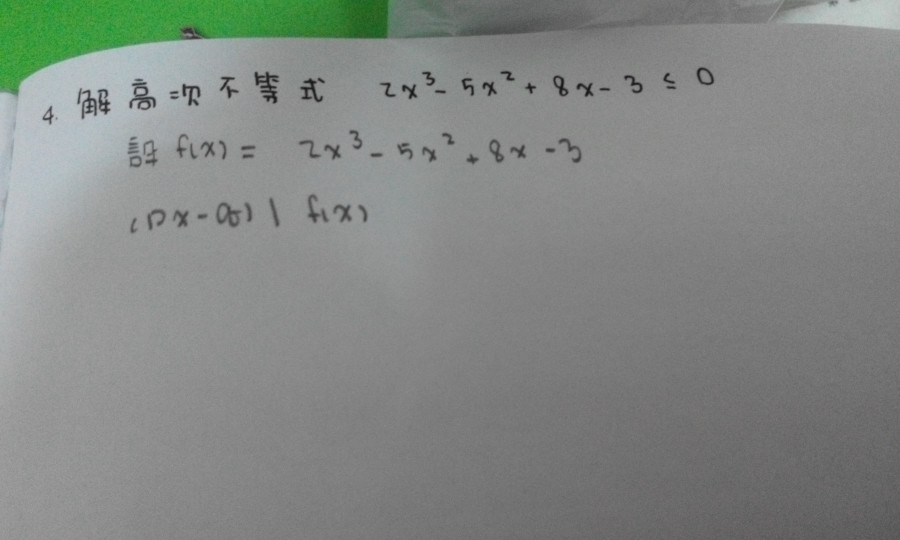 4. 解高次不等式 2x³ - 5x² + 8x - 3 ≤ 0
設 f(x) = 2x³ - 5x² + 8x - 3
(px - q) | f(x)